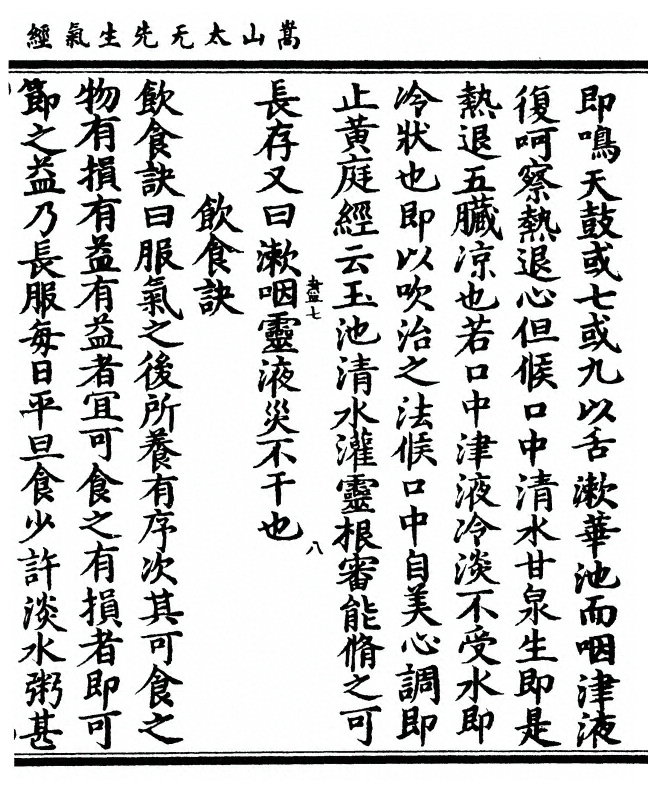 嵩山太无先生氣經
即鳴天鼓或七或九以舌漱華池而咽津液
復呵察熱退心但候口中清水甘泉生即是
熱退五臟凉也若口中津液冷淡不受水即
冷狀也即以吹治之法候口中自美心調即
止黃庭經云玉池清水灌靈根審能脩之可
長存又曰漱咽靈液災不干也
八
飲食訣
飲食訣曰服氣之後所養有序次其可食之
物有損有益有益者宜可食之有損者即可
節之益乃長服每日平旦食少許淡水粥甚